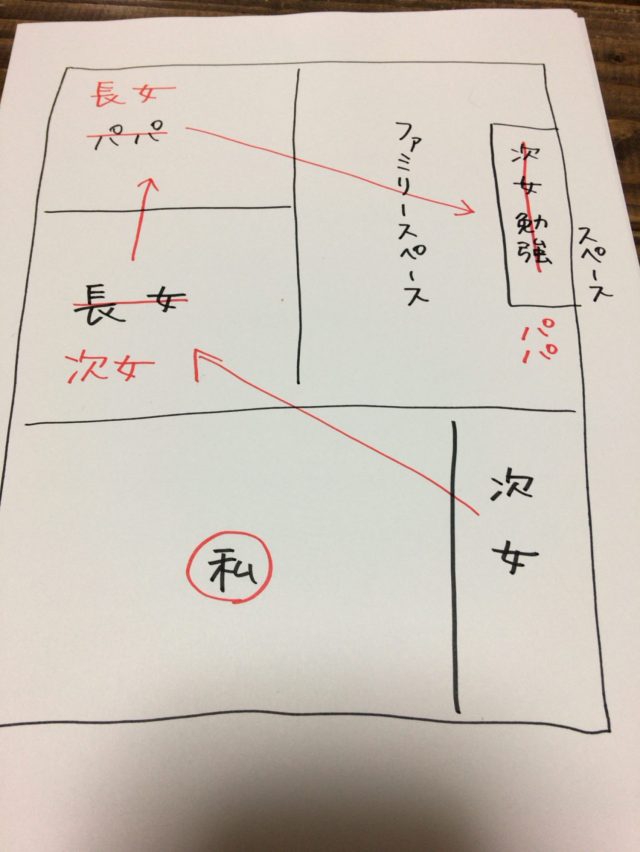 長女
パパ
長女
次女
ファミリースペース
次女勉強
スペース
パパ
私
次女